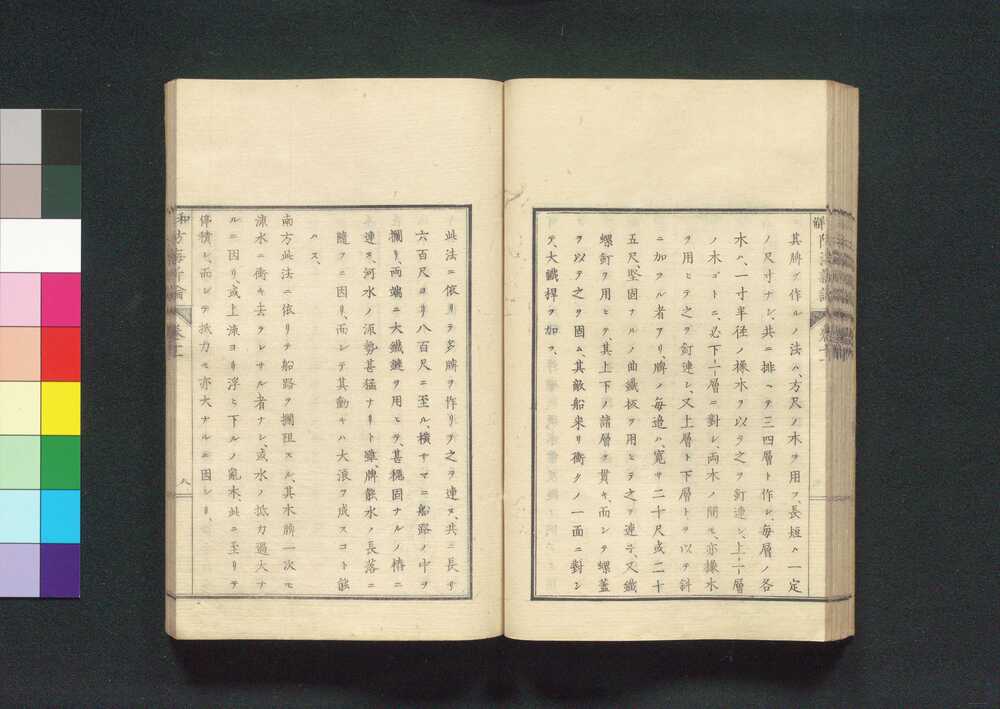 其牌ヲ作ルノ法ハ、方尺ノ木ヲ用フ、長短ハ一定
ノ尺寸ナシ、共ニ排ヘテ三四層ト作シ、每層ノ各
木ハ、一寸半径ノ橡木ヲ以テ之ヲ釘連シ、上一層
ノ木ゴトニ、必下一層ニ對シ、両木ノ間モ、亦橡木
ヲ用ヒテ之ヲ釘連シ、又上層ト下層トヲ以テ斜
ニ加フル者アリ、牌ノ每邉ハ、寛サ二十尺或二十
五尺、堅固ナルノ曲鐵板ヲ用ヒテ之ヲ連子、又鐵
螺釘ヲ用ヒテ、其上下ノ諸層ヲ貫キ、而シテ螺蓋
ヲ以テ之ヲ固ム、其敵船来リ衝クノ一面ニ對シ
テ、大鐵捍ヲ加フ、
此法ニ依リテ多牌ヲ作リテ之ヲ連ヌ、共ニ長サ
六百尺ヨリ八百尺ニ至ル、横サマニ船路ノ中ヲ
攔リ、両端ニ大鐵鏈ヲ用ヒテ、甚穏固ナルノ樁ニ
連ヌ、河水ノ流勢甚猛ナリト雖、牌能水ノ長落ニ
随フニ因リ、而シテ其動キハ大浪ヲ成スコト能
ハス、
南方此法ニ依リテ船路ヲ攔阻スル、其木牌一次モ
湶水ニ衝キ去ラレサル者ナシ、或水ノ抵力過大ナ
ルニ因リ、或上湶ヨリ浮ヒ下ルノ亂木、此ニ至リテ
停積シ、而シテ抵力モ亦大ナルニ因レリ、
防海新論
卷十一
八